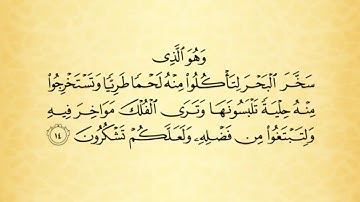 وَهُوَ ٱلَّذِى
سَخَّرَ ٱلْبَحْرَ لِتَأْكُلُوا۟ مِنْهُ لَحْمًا طَرِيًّا وَتَسْتَخْرِجُوا۟
مِنْهُ حِلْيَةً تَلْبَسُونَهَا وَتَرَى ٱلْفُلْكَ مَوَاخِرَ فِيهِ
وَلِتَبْتَغُوا۟ مِن فَضْلِهِۦ وَلَعَلَّكُمْ تَشْكُرُونَ ١٤